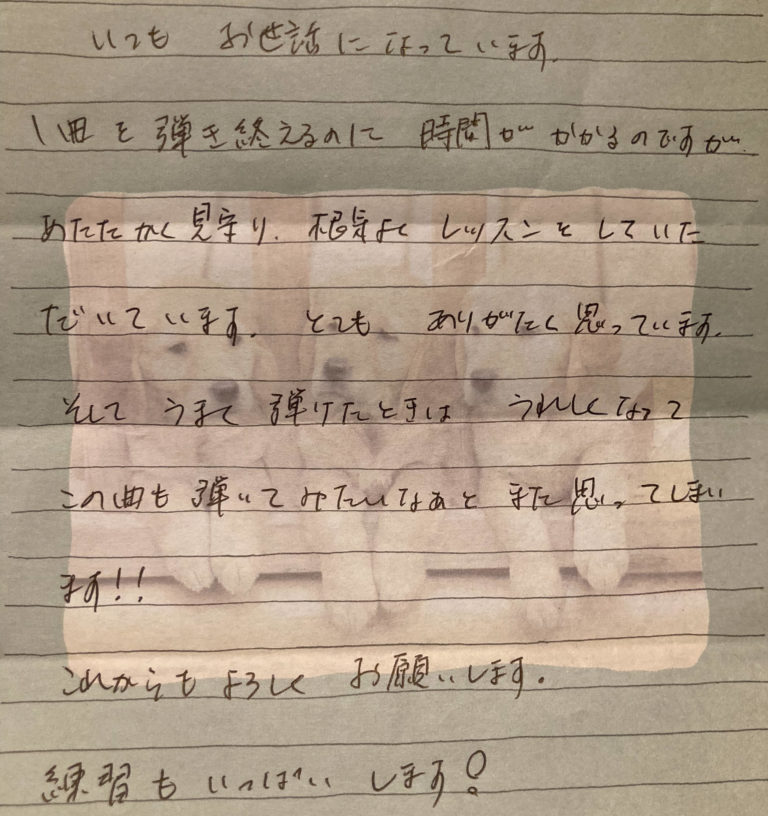 いつも お世話になっています。
1曲を弾き終えるのに 時間が かかるのですが、
あたたかく見守り、根気よく レッスンをしていた
だいています。とても ありがたく思っています。
そして うまく 弾けたときは うれしくなって
この曲も弾いてみたいなぁと また思ってしまい
ます!!
これからも よろしく お願いします。
練習も いっぱい します!